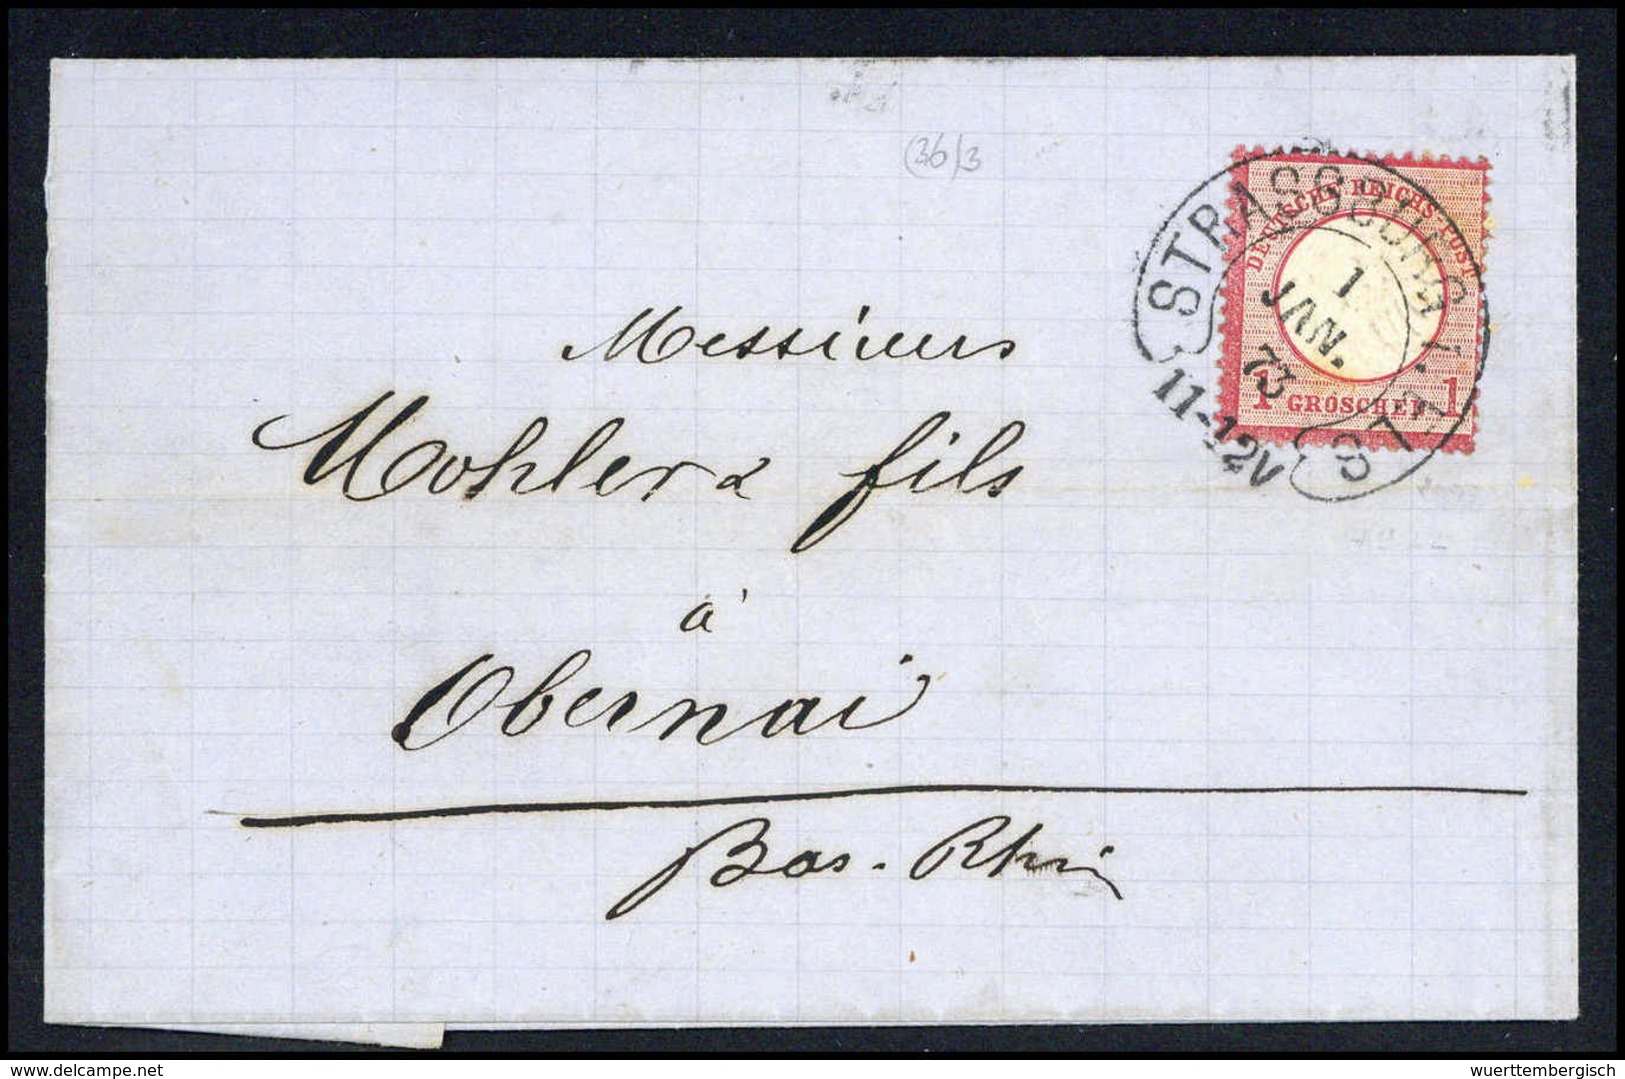 (36/3
STRASSBURG I. ELS.
1
JAN.
73
11-12V
DEUTSCHE REICHS-POST
1 GROSCHEN 1
Messieurs
Mohler & fils
à
Obernai
Bas-Rhin
www.delcampe.net
wuerttembergisch